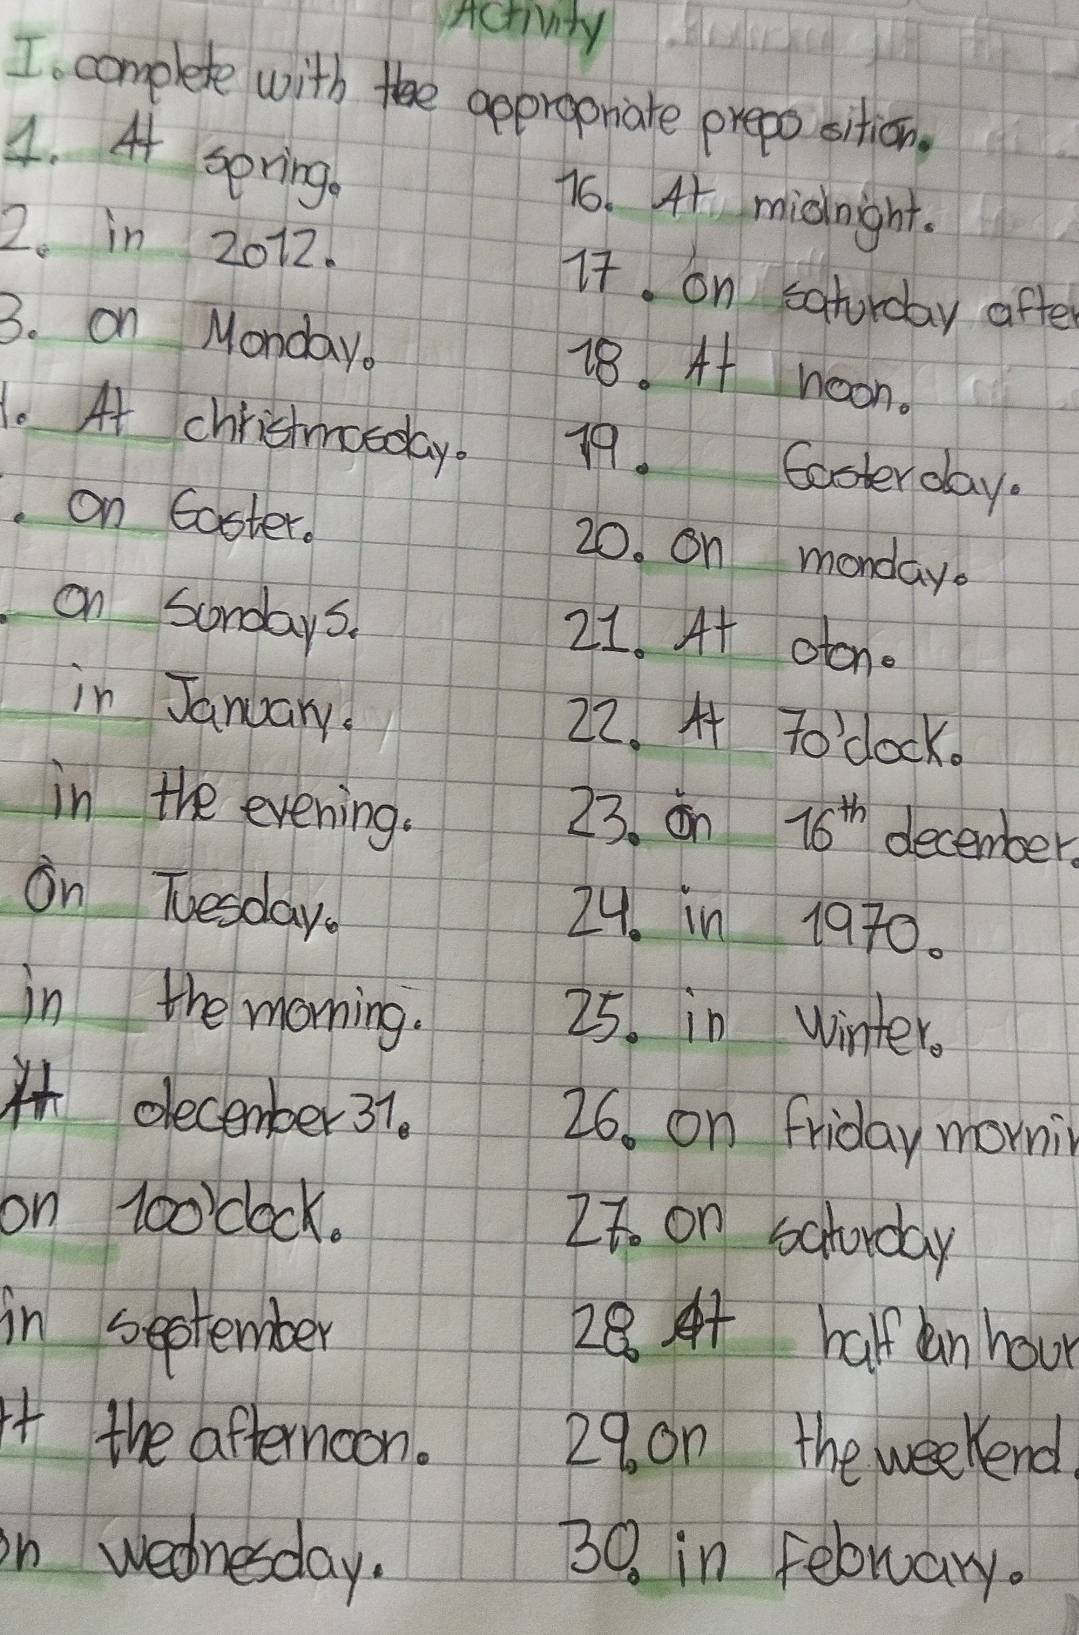 Activity
I. complete with the appropriate prepo sition.
1. At spring.
2. in 2012.
3. on Monday.
At christmasday.
on Easter.
on Sundays.
in January.
in the evening.
on Tuesday.
in the morning.
At december 31.
on 10o'clock.
in september
At the afternoon.
on wednesday.
16. At midnight.
17. on saturday after
18. At noon.
19. Easterday.
20. on monday.
21. At
22. At 7o'clock.
23. on 16th december.
24. in 1970.
25. in winter.
26. on friday mornin
27. on saturday
28. At half an hour
29. on the weekend.
30. in february.